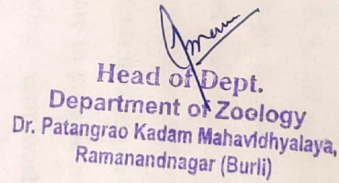 Head of Dept.
Department of Zoology
Dr. Patangrao Kadam Mahavidhyalaya,
Ramanandnagar (Burli)